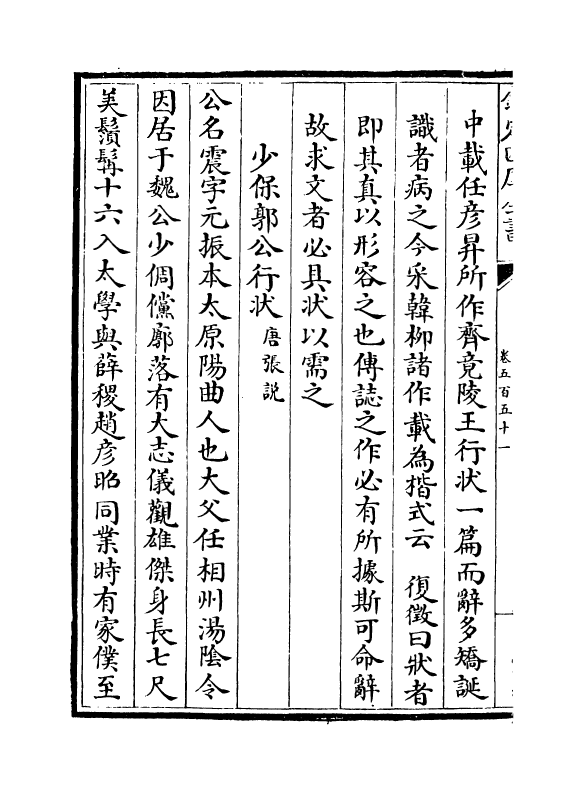 卷五百五十一
中載任彦昇所作齊竟陵王行狀一篇而辭多矯誕
識者病之今采韓柳諸作載為楷式云　復徵曰狀者
即其真以形容之也傳誌之作必有所據斯可命辭
故求文者必具狀以需之
少保郭公行狀　唐張説
公名震字元振本太原陽曲人也大父任相州湯隂令
因居于魏公少倜儻廓落有大志儀觀雄傑身長七尺
美鬚髯十六入太學與薛稷趙彦昭同業時有家僕至